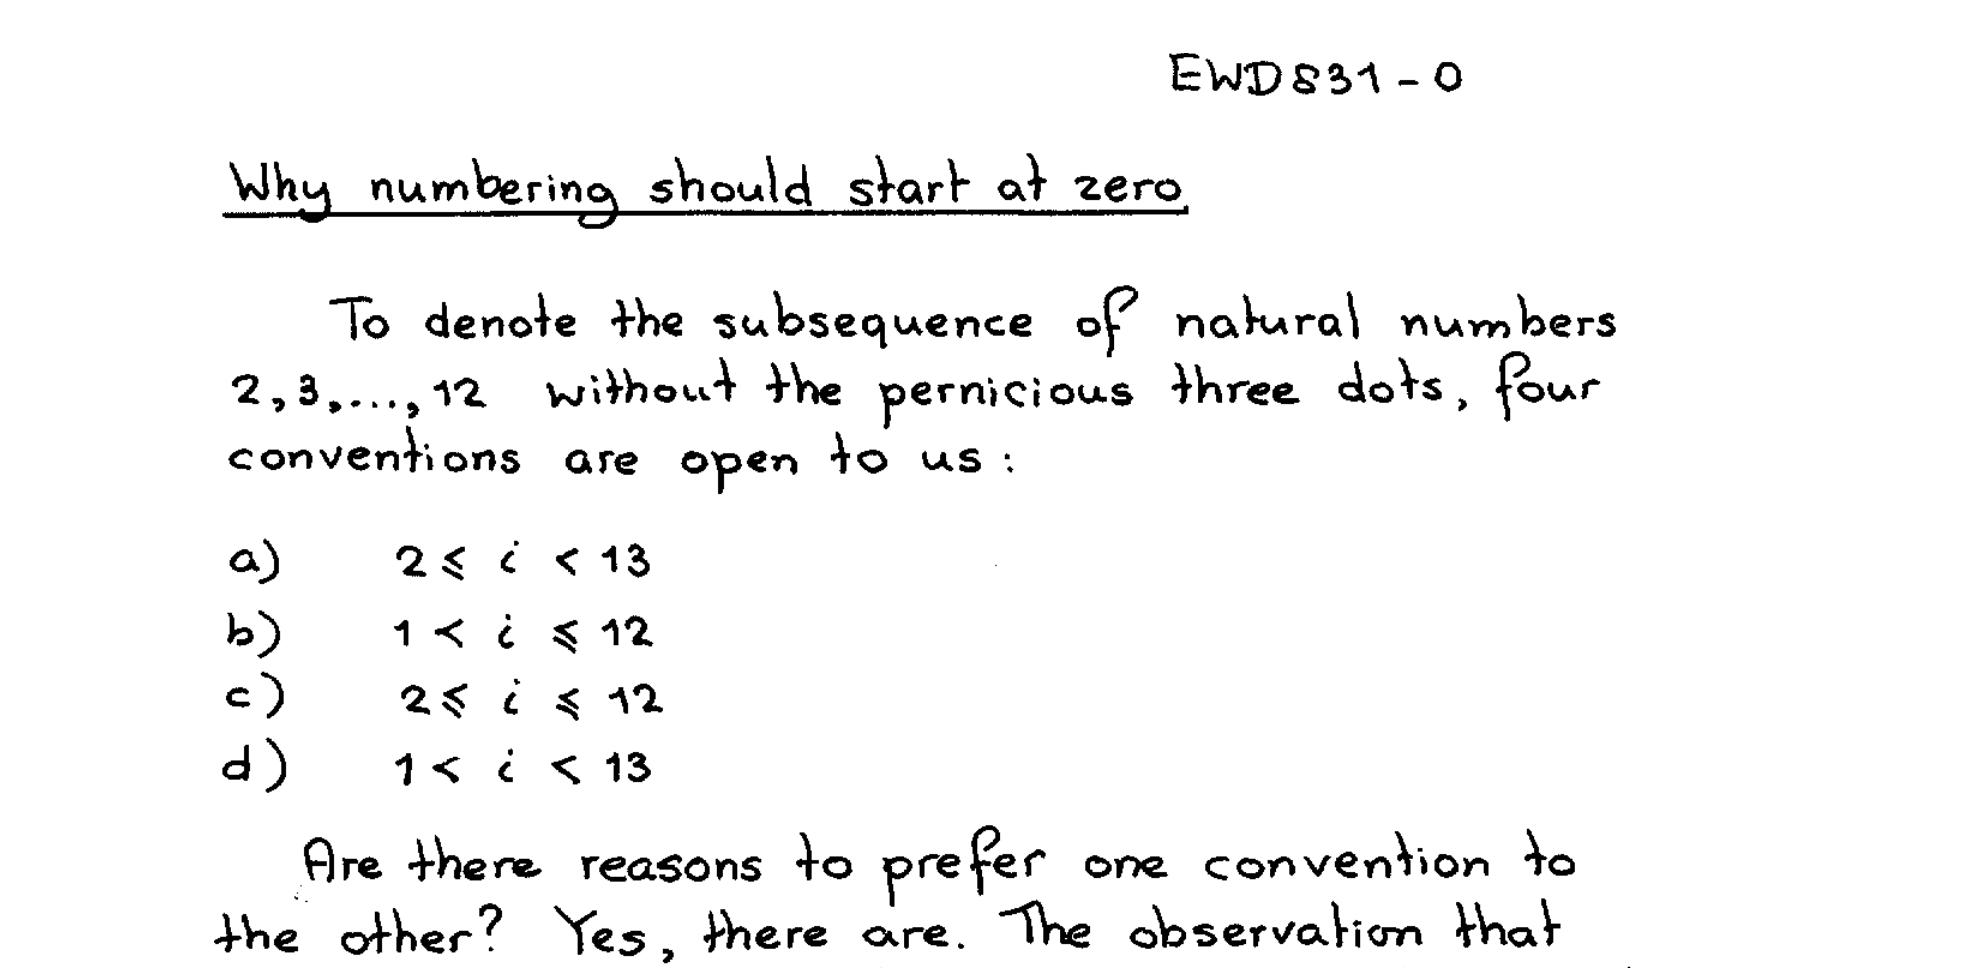 EWD831-0
Why numbering should start at zero
To denote the subsequence of natural numbers
2,3,...,12 without the pernicious three dots, four
conventions are open to us:
a) 2 ≤ i < 13
b) 1 < i ≤ 12
c) 2 ≤ i ≤ 12
d) 1 < i < 13
Are there reasons to prefer one convention to
the other? Yes, there are. The observation that